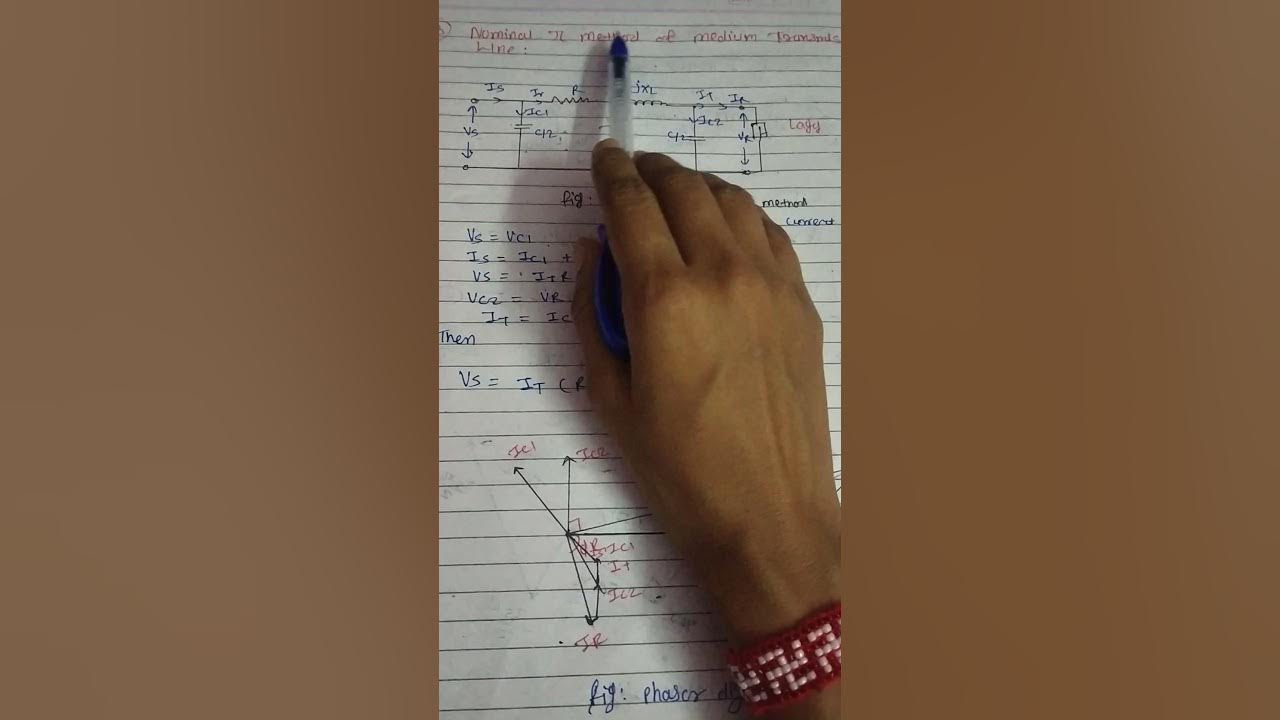 Nominal π method of medium Transmis
Line:
Is
R
jXL
IT
IR
IC1
IC2
Vs
C/2
C/2
VR
Load
fig:
method
current
Vs = VC1
Is = IC1 +
Vs = IT R
VC2 = VR
IT = IC
Then
Vs = IT (R
IC1
IC2
IC1
IT
IC2
IR
fig: phasor